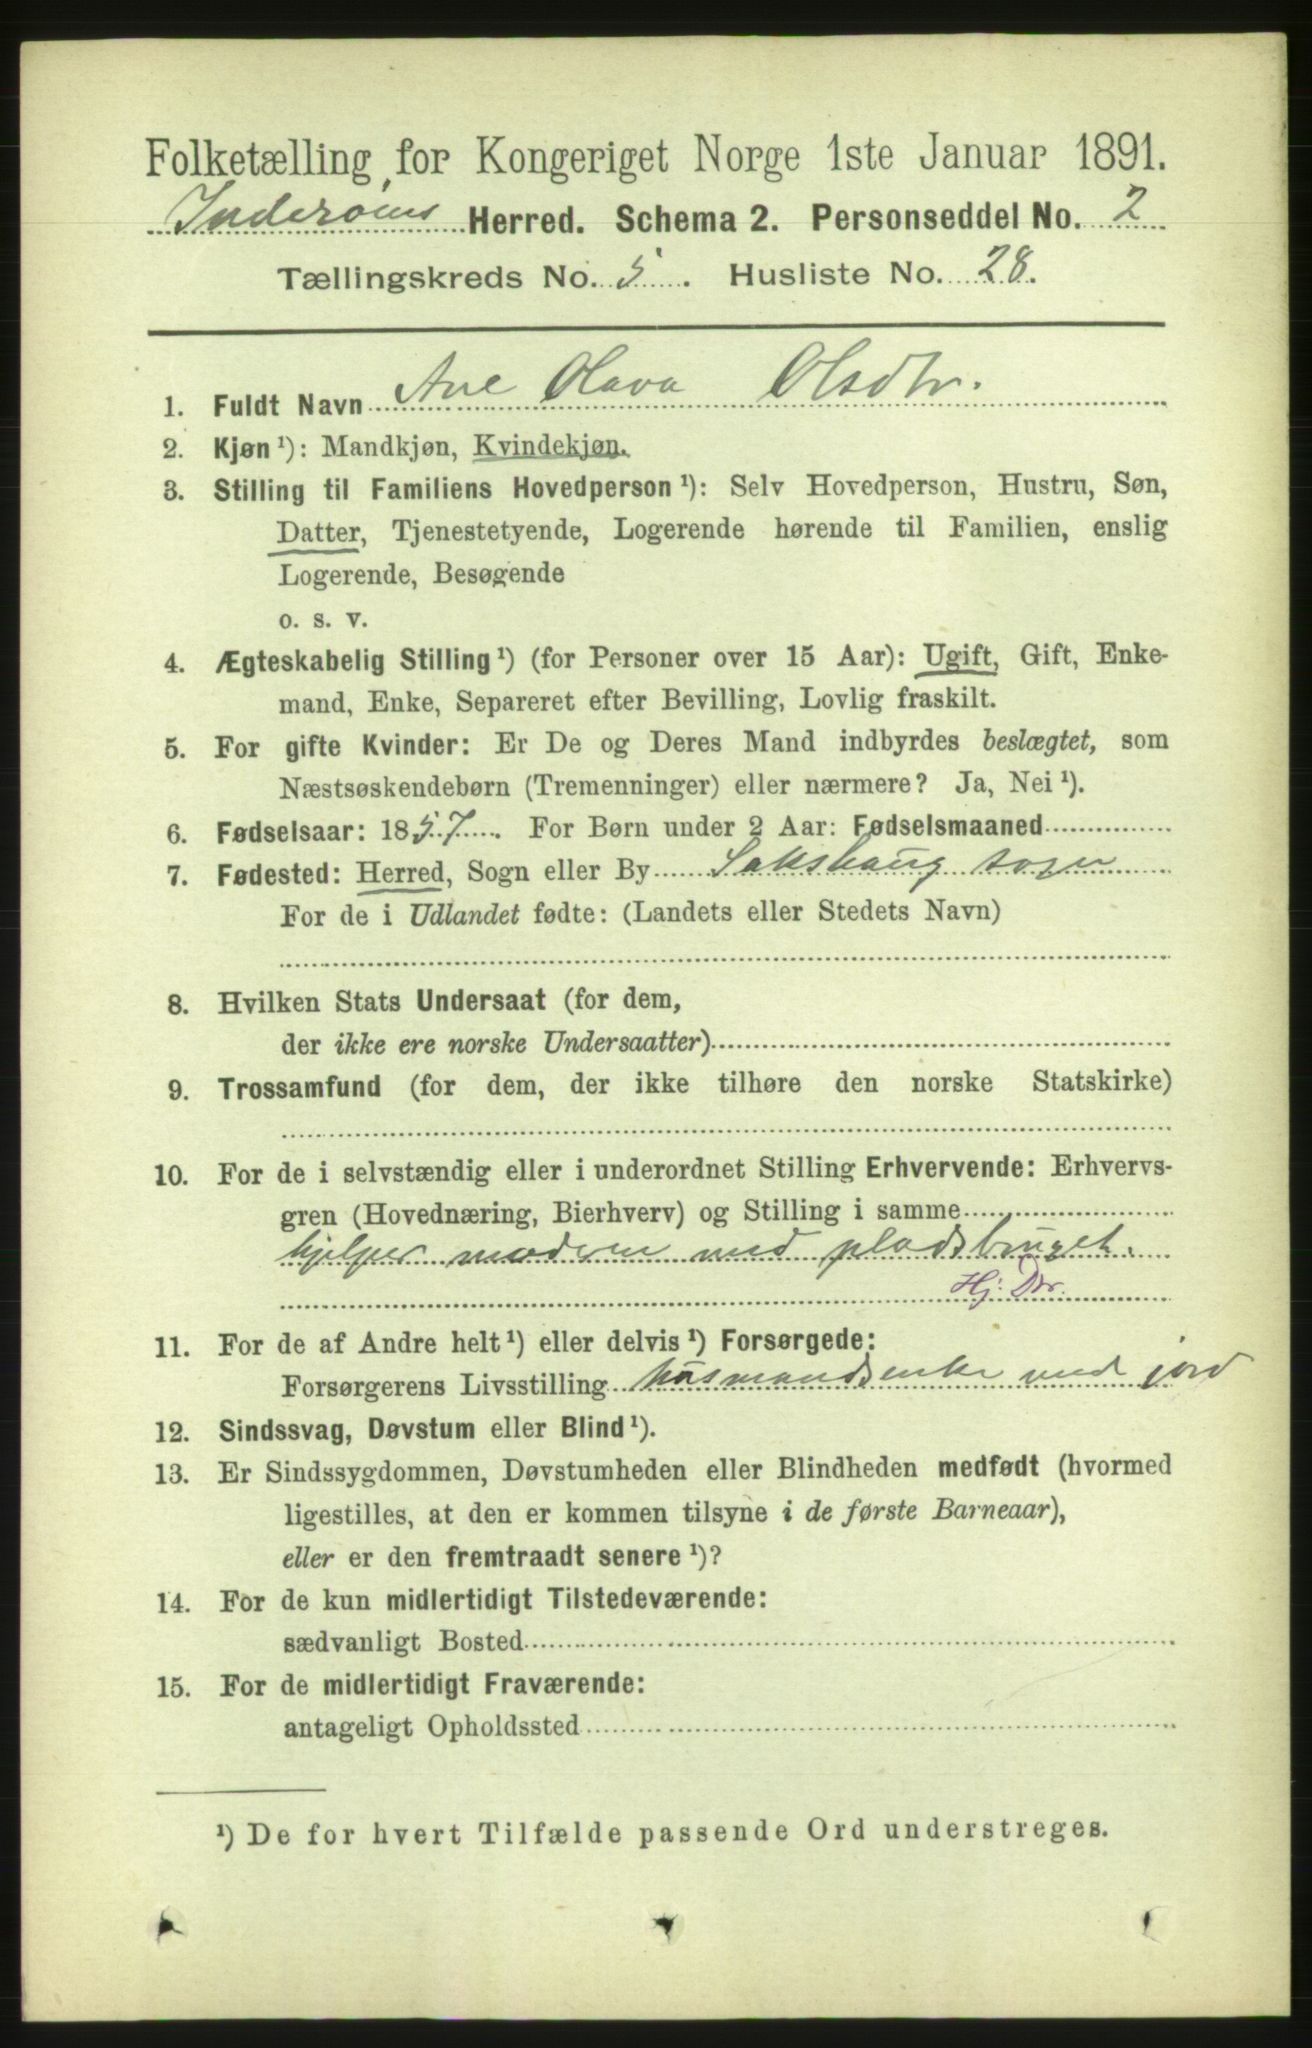 Folketælling for Kongeriget Norge 1ste Januar 1891.
Inderøens Herred. Schema 2. Personseddel No. 2
Tællingskreds No. 5. Husliste No. 28.
1. Fuldt Navn Ane Olava Olsdtr.
2. Kjøn¹): Mandkjøn, Kvindekjøn.
3. Stilling til Familiens Hovedperson¹): Selv Hovedperson, Hustru, Søn,
Datter, Tjenestetyende, Logerende hørende til Familien, enslig
Logerende, Besøgende
o. s. v.
4. Ægteskabelig Stilling¹) (for Personer over 15 Aar): Ugift, Gift, Enke-
mand, Enke, Separeret efter Bevilling, Lovlig fraskilt.
5. For gifte Kvinder: Er De og Deres Mand indbyrdes beslægtet, som
Næstsøskendebørn (Tremenninger) eller nærmere? Ja, Nei¹).
6. Fødselsaar: 1857. For Børn under 2 Aar: Fødselsmaaned
7. Fødested: Herred, Sogn eller By Sakshaug sogn
For de i Udlandet fødte: (Landets eller Stedets Navn)
8. Hvilken Stats Undersaat (for dem,
der ikke ere norske Undersaatter)
9. Trossamfund (for dem, der ikke tilhøre den norske Statskirke)
10. For de i selvstændig eller i underordnet Stilling Erhvervende: Erhvervs-
gren (Hovednæring, Bierhverv) og Stilling i samme
hjelper moderen med pladsbruget.
Hj. Dtr.
11. For de af Andre helt¹) eller delvis¹) Forsørgede:
Forsørgerens Livsstilling husmandsenke med jord
12. Sindssvag, Døvstum eller Blind¹).
13. Er Sindssygdommen, Døvstumheden eller Blindheden medfødt (hvormed
ligestilles, at den er kommen tilsyne i de første Barneaar),
eller er den fremtraadt senere¹)?
14. For de kun midlertidigt Tilstedeværende:
sædvanligt Bosted
15. For de midlertidigt Fraværende:
antageligt Opholdssted
¹) De for hvert Tilfælde passende Ord understreges.